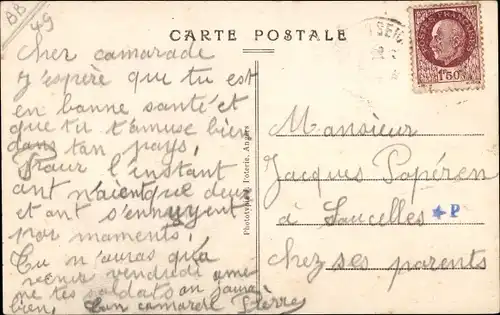 BB
49
CARTE POSTALE
POSTES FRANÇAISES
1F50
Cher camarade
J'espère que tu est
en bonne santé et
que tu t'amuse bien
dans ton pays,
Pour l'instant
ont n'aient que deux
et ont s'ennuyent
par moments,
Tu n'auras qu'a
venir vendredi ame
ne tes soldats on jouera
bien, Ton camarde Pierre
Phototypie J. Poterie, Angers
Monsieur
Jacques Papéren
à Saucelles ★ P
chez ses parents